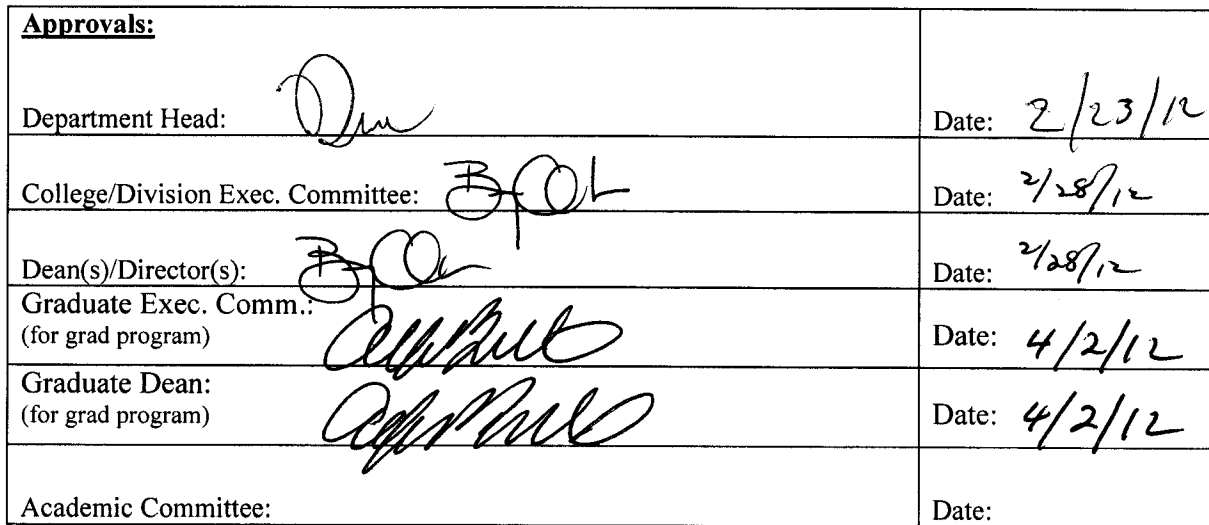 Approvals:
Department Head: Date: 2/23/12
College/Division Exec. Committee: Date: 2/28/12
Dean(s)/Director(s): Date: 2/28/12
Graduate Exec. Comm.:
(for grad program) Date: 4/2/12
Graduate Dean:
(for grad program) Date: 4/2/12
Academic Committee: Date: